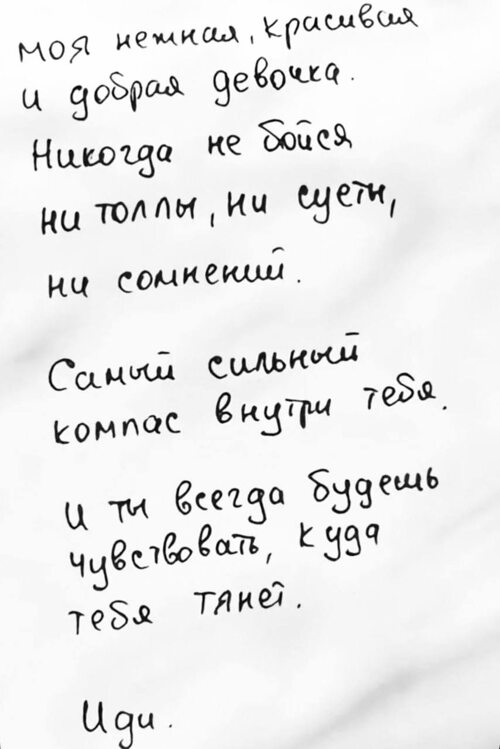 моя нежная, красивая
и добрая девочка.
Никогда не бойся
ни толпы, ни суеты,
ни сомнений.
Самый сильный
компас внутри тебя.
И ты всегда будешь
чувствовать, куда
тебя тянет.
Иди.